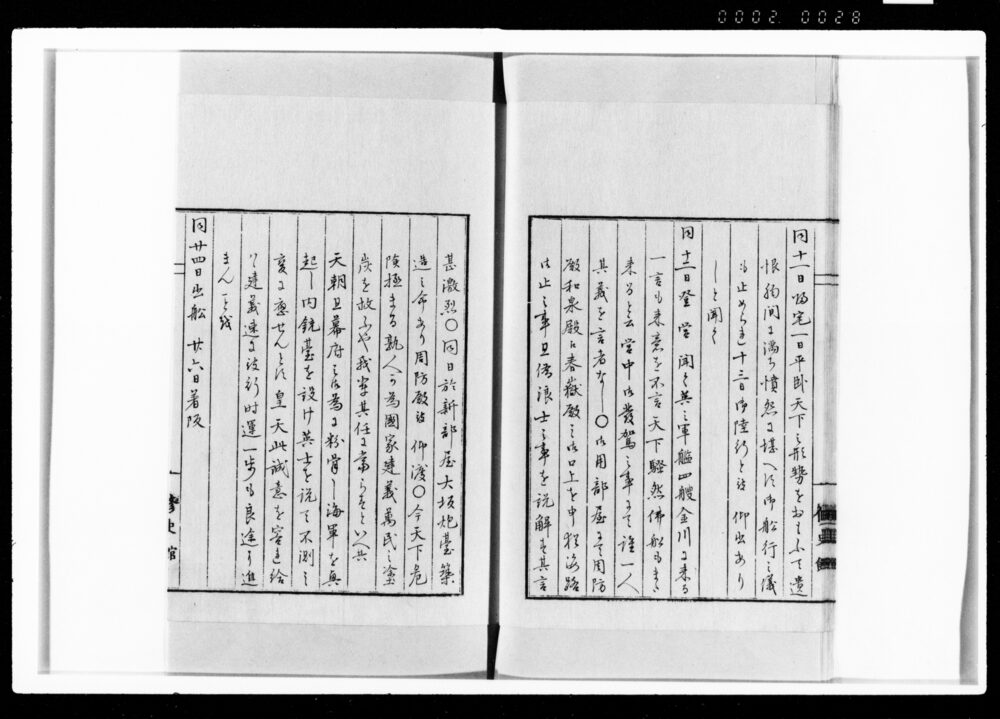 0002.0028
同十一日帰宅一日平臥天下之形勢をおもふて遺
恨胸間に満ち憤然に堪へす御船行之議
も止められ十三日御陸行と被 仰出あり
しと聞く
同十二日登 営 聞く英之軍艦四艘金川に来る
一言も来意を不言天下騒然佛船もまた
来ると云営中御発駕之事にて誰一人
其義を言者なし〇御用部屋にて周防
殿和泉殿に春嶽殿之御口上を申程海路
御止之事且浪士之事を説解す其言
甚激烈〇同日於新部屋大坂炮臺築
造之命あり周防殿被 仰渡〇今天下危
険極まる孰人か為國家建義萬民之塗
炭を救ふや我輩其任に當らすといへ共
天朝且幕府之御為に粉骨し海軍を興
起し内銃臺を設け英士を説て不測之
変に應せんとす皇天此誠意を容れ給
ハヽ建義速に被行時運一歩も良途に進
まんことを
同廿四日出船 廿六日着阪
修史館